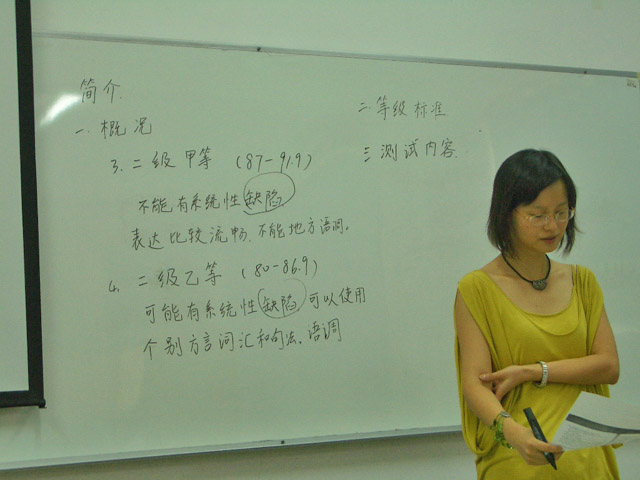 简介.
一. 概况
3. 二级甲等 (87-91.9)
不能有系统性缺陷
表达比较流畅. 不能地方语调。
4. 二级乙等 (80-86.9)
可能有系统性缺陷 可以使用
个别方言词汇和句法. 语调
二. 等级标准
三 测试内容.